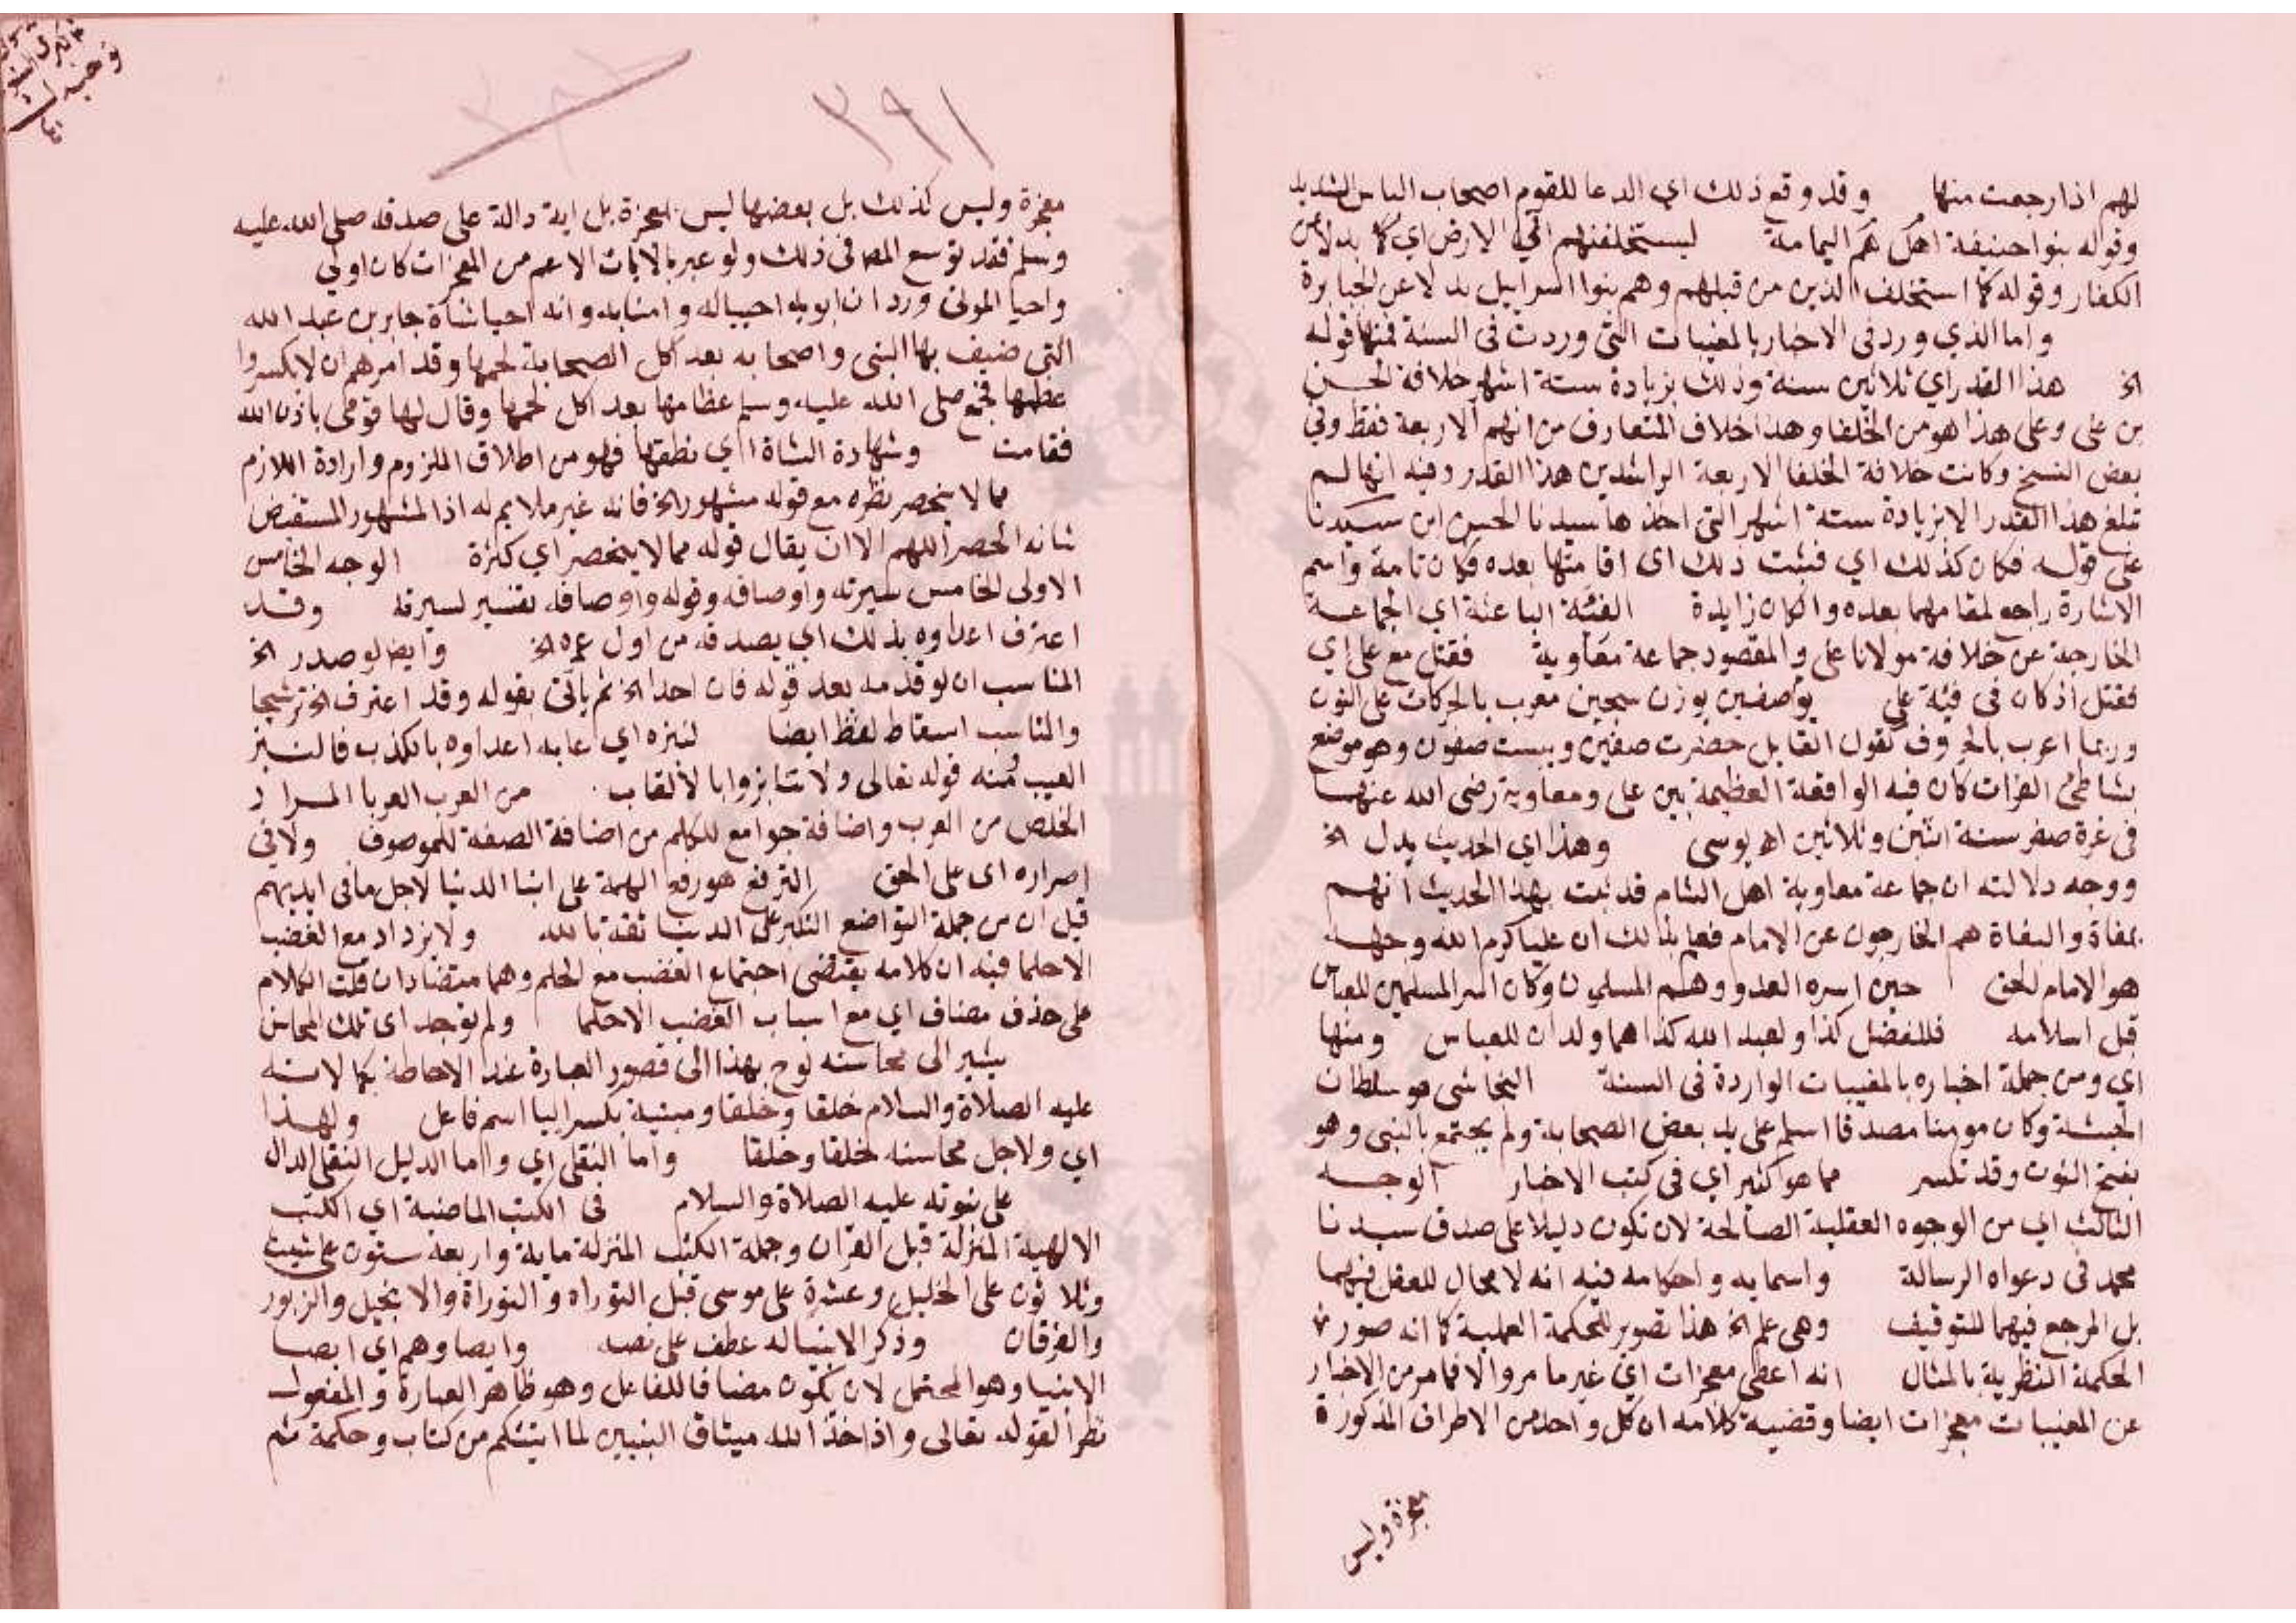 لهم اذا رجعت منها وقد وقع ذلك اي الدعا للقوم اصحاب الباس الشديد
وقوله بنوا حنيفة اهل هم اليمامة ليستخلفنهم في الارض اي كما بدلا عن
الكفار وقوله كما استخلف الذين من قبلهم وهم بنوا اسراييل بدلا عن الجبابرة
واما الذي ورد في الاخبار بالمغيبات التي وردت في السنة فمنها قوله
الخ هذا القدر اي ثلاثين سنة وذلك بزيادة ستة اشهر خلافة الحسن
بن على وعلى هذا هو من الخلفا وهذا خلاف المتعارف من انهم الاربعة فقط وفي
بعض النسخ وكانت خلافة الخلفا الاربعة الراشدين هذا القدر وفيه انها لم
تبلغ هذا القدر الا بزيادة ستة اشهر التي اخذها سيدنا الحسن ابن سيدنا
على قوله فكان كذلك اي فثبت ذلك اى اقامتها بعده فكان تامة واسم
الاشارة راجع لمقامهما بعده وا كان زايدة الفئة الباغية اي الجماعة
الخارجة عن خلافة مولانا على والمقصود جماعة معاوية فقتل مع على اي
فقتل اذ كان في فية على يو صفين بوزن سجين معرب بالحركات على النون
وربما اعرب بالحروف كقول القايل حضرت صفين وبيست صفون وهو موضع
بشاطئ الفرات كان فيه الواقعة العظيمة بين على ومعاوية رضى الله عنهما
في غرة صفر سنة اثنين وثلاثين اھ يوسى وهذا اي الحديث يدل الخ
ووجه دلالته ان جماعة معاوية اهل الشام قد ثبت بهذا الحديث انهم
بغاة والبغاة هم الخارجون عن الامام فعلم بذلك ان عليا كرم الله وجهه
هو الامام الحق حين اسره العدو وهم المسلمون وكان اسر المسلمين للعباس
قبل اسلامه فللفضل كذا ولعبد الله كذا هما ولدان للعباس ومنها
اي ومن جملة اخباره بالمغيبات الواردة في السنة النجاشى هو سلطان
الحبشة وكان مومنا مصدقا اسلم على يد بعض الصحابة ولم يجتمع بالنبى وهو
بفتح النون وقد تكسر مما هو كثير اي في كتب الاخبار الوجه
الثالث اي من الوجوه العقلية الصالحة لان تكون دليلا على صدق سيدنا
محمد في دعواه الرسالة واسمايه واحكامه فيه انه لا مجال للعقل فيهما
بل المرجع فيهما للتوقيف وهى علم الخ هذا تصوير للحكمة العملية كما انه صور
الحكمة النظرية بالمثال انه اعطى معجزات اي غير ما مر والا فما مر من الاخبار
عن المغيبات معجزات ايضا وقضية كلامه ان كل واحد من الاطراف المذكورة
معجزة وليس
٣٩١
معجزة وليس كذلك بل بعضها ليس بمعجزة بل اية دالة على صدقه صلى الله عليه
وسلم فقد توسع المصـ في ذلك ولو عبر بالايات الاعم من المعجزات كان اولى
واحيا الموتى ورد ان ابويه احيياله وامنا به وانه احيا شاة جابر بن عبد الله
التى ضيف بها النبى واصحابه بعد اكل الصحابة لحمها وقد امرهم ان لا يكسروا
عظمها فجمع صلى الله عليه وسلم عظامها بعد اكل لحمها وقال لها قومى باذن الله
فقامت وشهادة الشاة اي نطقها فهو من اطلاق الملزوم وارادة اللازم
مما لا ينحصر نظره مع قوله مشهور الخ فانه غير ملايم له اذ المشهور المستفيض
شانه الحصر اللهم الا ان يقال قوله مما لا ينحصر اي كثرة الوجه الخامس
الاولى الخامس سيرته واوصافه وقوله واوصافه تفسير لسيرته وقد
اعترف اعداوه بذلك اي بصدقه من اول عمره الخ وايضا لو صدر الخ
المناسب ان لو قدمه بعد قوله فان احدا الخ ثم ياتى بقوله وقد اعترف الخ ترشيحا
والمناسب اسقاط لفظ ايضا لنبزه اي عابه اعداوه بالكذب فالنبز
العيب ومنه قوله تعالى ولا تنابزوا بالالقاب من العرب العربا المراد
الخلص من العرب واضافة جوامع للكلم من اضافة الصفة للموصوف ولا في
اصراره اى على الحق الترفع هو رفع الهمة على ابنا الدنيا لاجل ما في ايديهم
قيل ان من جملة التواضع التكبر على الدنيا ثقة بالله ولا يزداد مع الغضب
الا حلما فيه ان كلامه يقتضى اجتماع الغضب مع الحلم وهما متضادان قلت الكلام
على حذف مضاف اي مع اسباب الغضب الا حلما ولم توجد اى تلك المحاسن
يشير الى محاسنه لوح بهذا الى قصور العبارة عند الاحاطة بكمالاته
عليه الصلاة والسلام خلقا وخلقا ومبنية بكسر اليا اسم فاعل ولهذا
اي ولاجل محاسنه خلقا وخلقا واما النقلى اي واما الدليل النقلى الدال
على نبوته عليه الصلاة والسلام في الكتب الماضية اي الكتب
الالهية المنزلة قبل القران وجملة الكتب المنزلة ماية واربعة ستون على شيث
وثلاثون على الخليل وعشرة على موسى قبل التوراه و التوراة والانجيل والزبور
والفرقان وذكر الانبيا له عطف على نصه وايصاوهم اي ايصا
الانبيا وهو المحتمل لان يكون مضافا للفاعل وهو ظاهر العبارة و المفعول
نظرا لقوله تعالى واذ اخذ الله ميثاق النبيين لما اتيتكم من كتاب وحكمة ثم